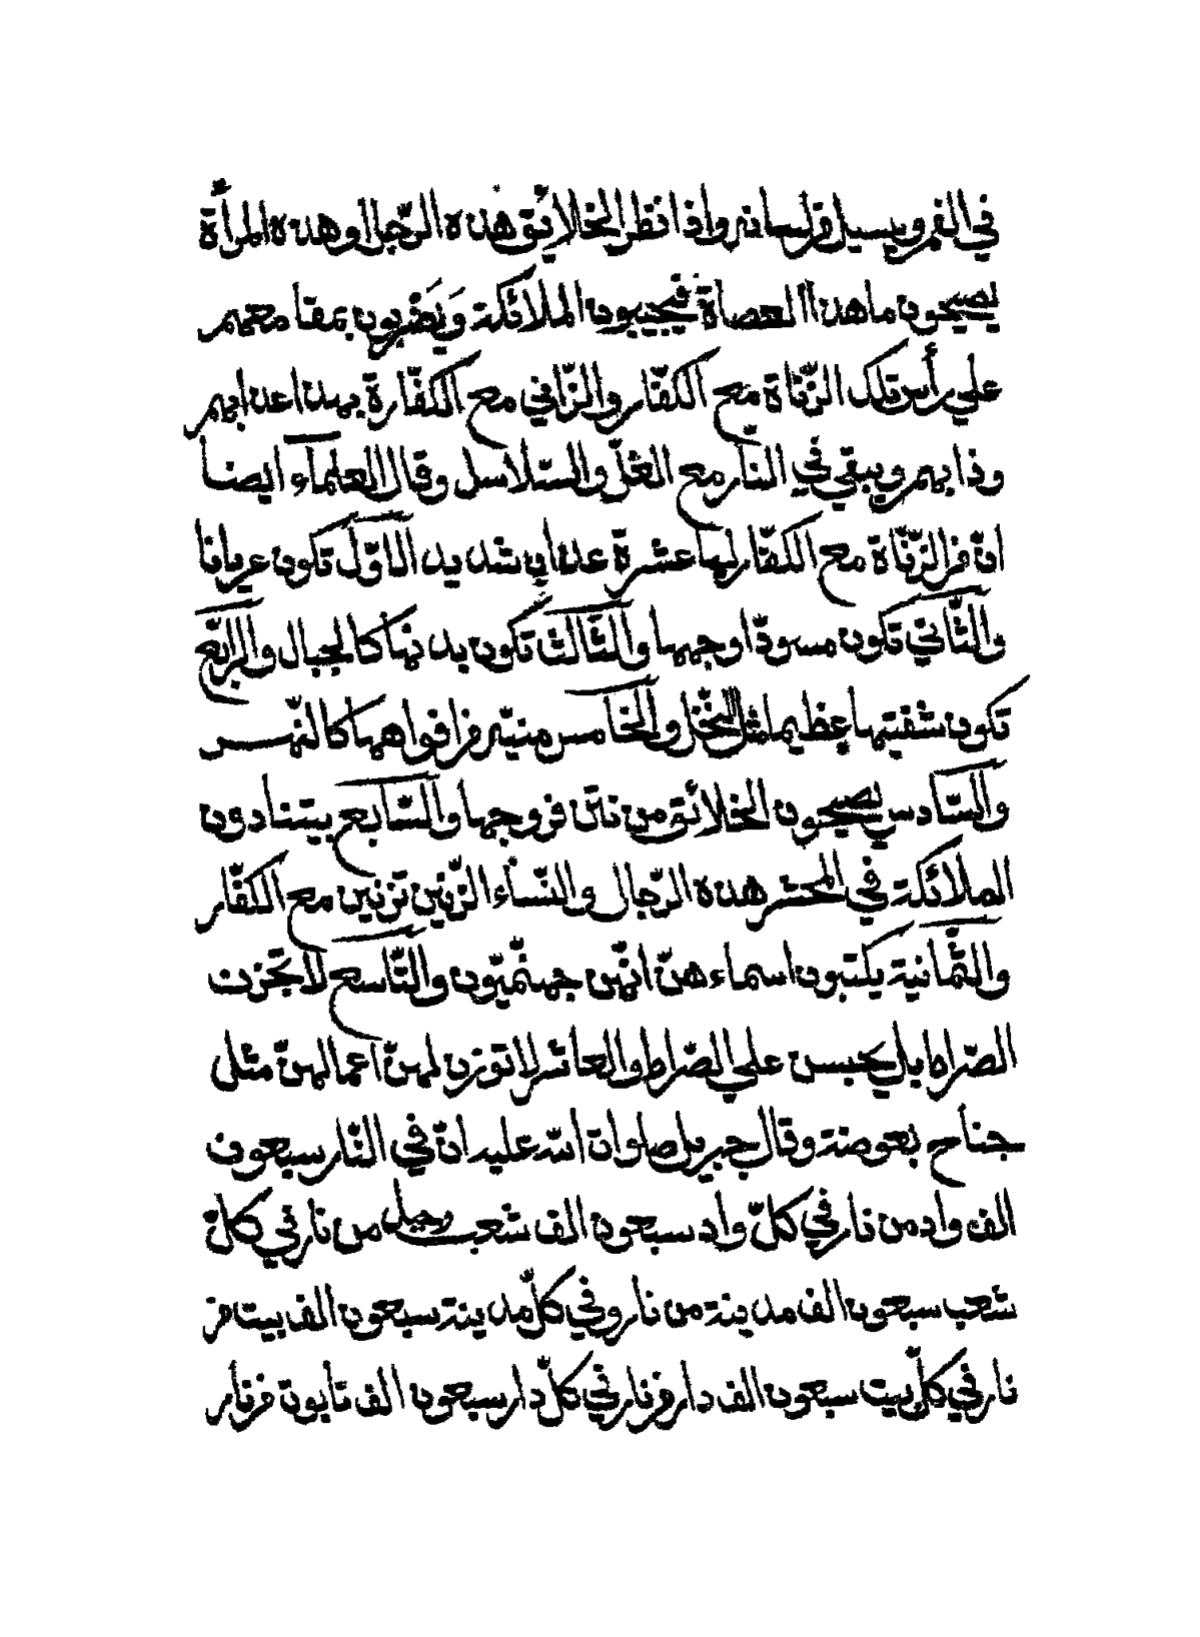 في الفم ويسيل من لسانه واذا نظر الخلائق هذه الرّجل او هذه المرأة
يصيحون ما هذا العصاة فيجيبون الملائكة وَيَضْربون بمقامعهم
علي رأس تلك الزّناة مع الكفّار والزّاني مع الكفّارة بهذا عذابهم
وذابهم ويبقي في النّار مع الغلّ والسّلاسل وقال العلمآء ايضا
انّ من الزّنّاة مع الكفّار لها عشرة عذاب شديد الاوّل تكون عريانا
والثّاني تكون مسودّا وجهها والثّالث تكون بدنها كالجبال والرّابع
تكون شفتيها عظيما مثل النّخل والخامس منيّه من افواهها كالنّهر
والسّادس يصيحون الخلائق من نتن فروجها والسّابع يتنادون
الملائكة في المحشر هذه الرّجال والنّسآء الزّنين تزنين مع الكفّار
والثّمانية يكتبون اسماءهنّ انّهن جهنّميّون والتّاسع لا تجزن
الصّراط بل يحبسن علي الصّراط والعاشر لا توزن لهنّ اعمالهنّ مثل
جناح بعوضة وقال جبريل صلوات الله عليه انّ في النّار سبعون
الف واد من نار في كلّ واد سبعون الف شعب وجبل من نار في كلّ
شعب سبعون الف مدينة من نار وفي كلّ مدينة سبعون الف بيت من
نار في كلّ بيت سبعون الف دار من نار في كلّ دار سبعون الف تابوت من نار